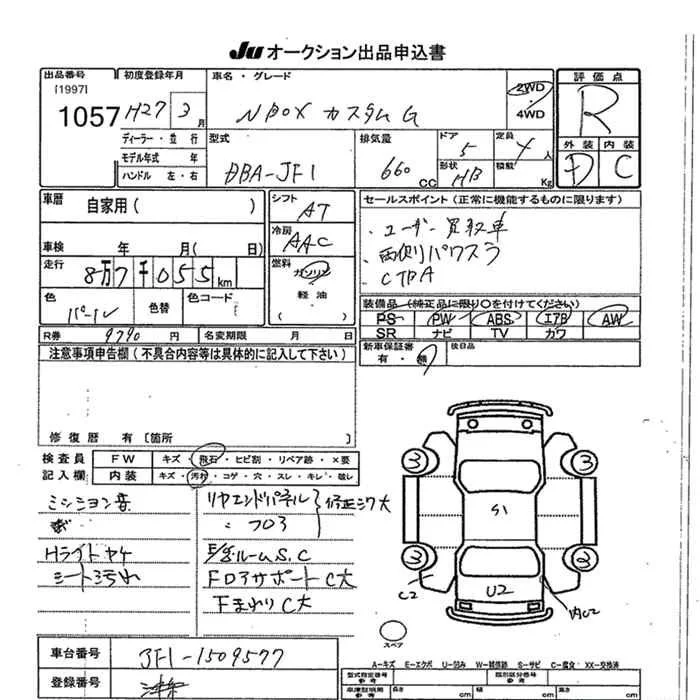 JU オークション出品申込書
出品番号 初度登録年月 車名・グレード 評価点
[1997]
1057 H27 3月 NBOX カスタムG 2WD・4WD R
ディーラー・並行 型式 排気量 ドア 定員 外装 内装
モデル年式 年 DBA-JF1 660cc 5 4人 D C
ハンドル 左・右 形状 HB 積数 Kg
車歴 自家用( ) シフト AT セールスポイント(正常に機能するものに限ります)
冷房 AAC ・ユーザー買取車
車検 年 月( 日) ・両側パワスラ
走行 8万7千055km 燃料 ガソリン・軽油 ・CTBA
色 パール 色替 色コード 装備品(純正品に限り○を付けてください)
PS PW ABS エアB AW
R券 9790円 名変期限 月 日 SR ナビ TV カワ
注意事項申告欄(不具合内容等は具体的に記入して下さい) 新車保証書 有・無 後日品
修復歴 有〔箇所
検査員 FW キズ・飛石・ヒビ割・リペア跡・×要
記入欄 内装 キズ・汚れ・コゲ・穴・スレ・キレ・破レ
ミッション音 リヤエンドパネル 修正シワ大
〃 フロア
Hライトヤケ 左右ルームS.C
シート3汚れ Fロアサポート C大
下まわり C大
3 3
S1
3 3
C2 U2 内C2
スペア
車台番号 JF1-1509577
登録番号
A-キズ E-エクボ U-凹み W-補修跡 S-サビ C-腐食 XX-交換済
型式指定番号 参考 類別区分番号 参考
車庫証明用 参考 長さ cm 幅 cm 高さ cm